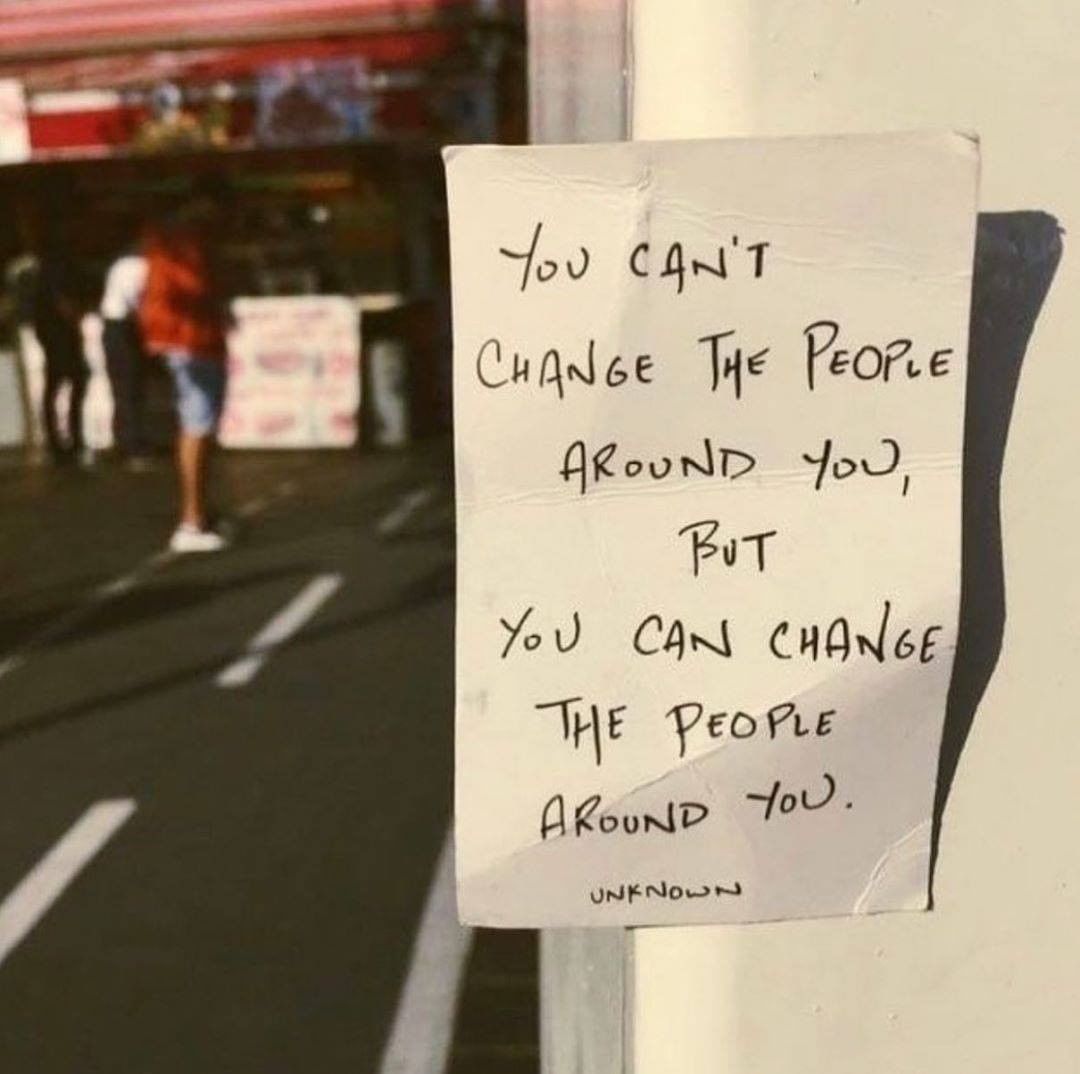 YOU CAN'T
CHANGE THE PEOPLE
AROUND YOU,
BUT
YOU CAN CHANGE
THE PEOPLE
AROUND YOU.
UNKNOWN